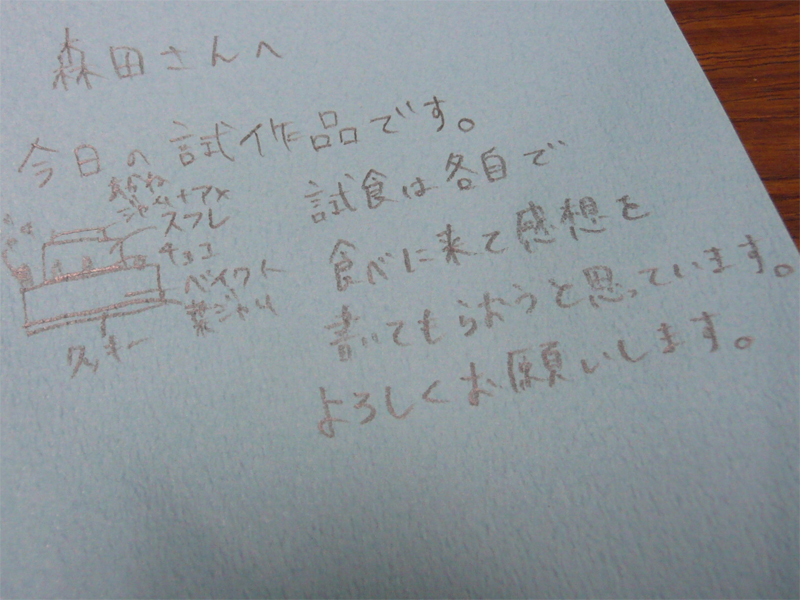 森田さんへ
今日の試作品です。
ジャム+アメ
スフレ
チョコ
ベイクト
ジャム
クッキー
試食は各自で
食べに来て感想を
書いてもらおうと思っています。
よろしくお願いします。